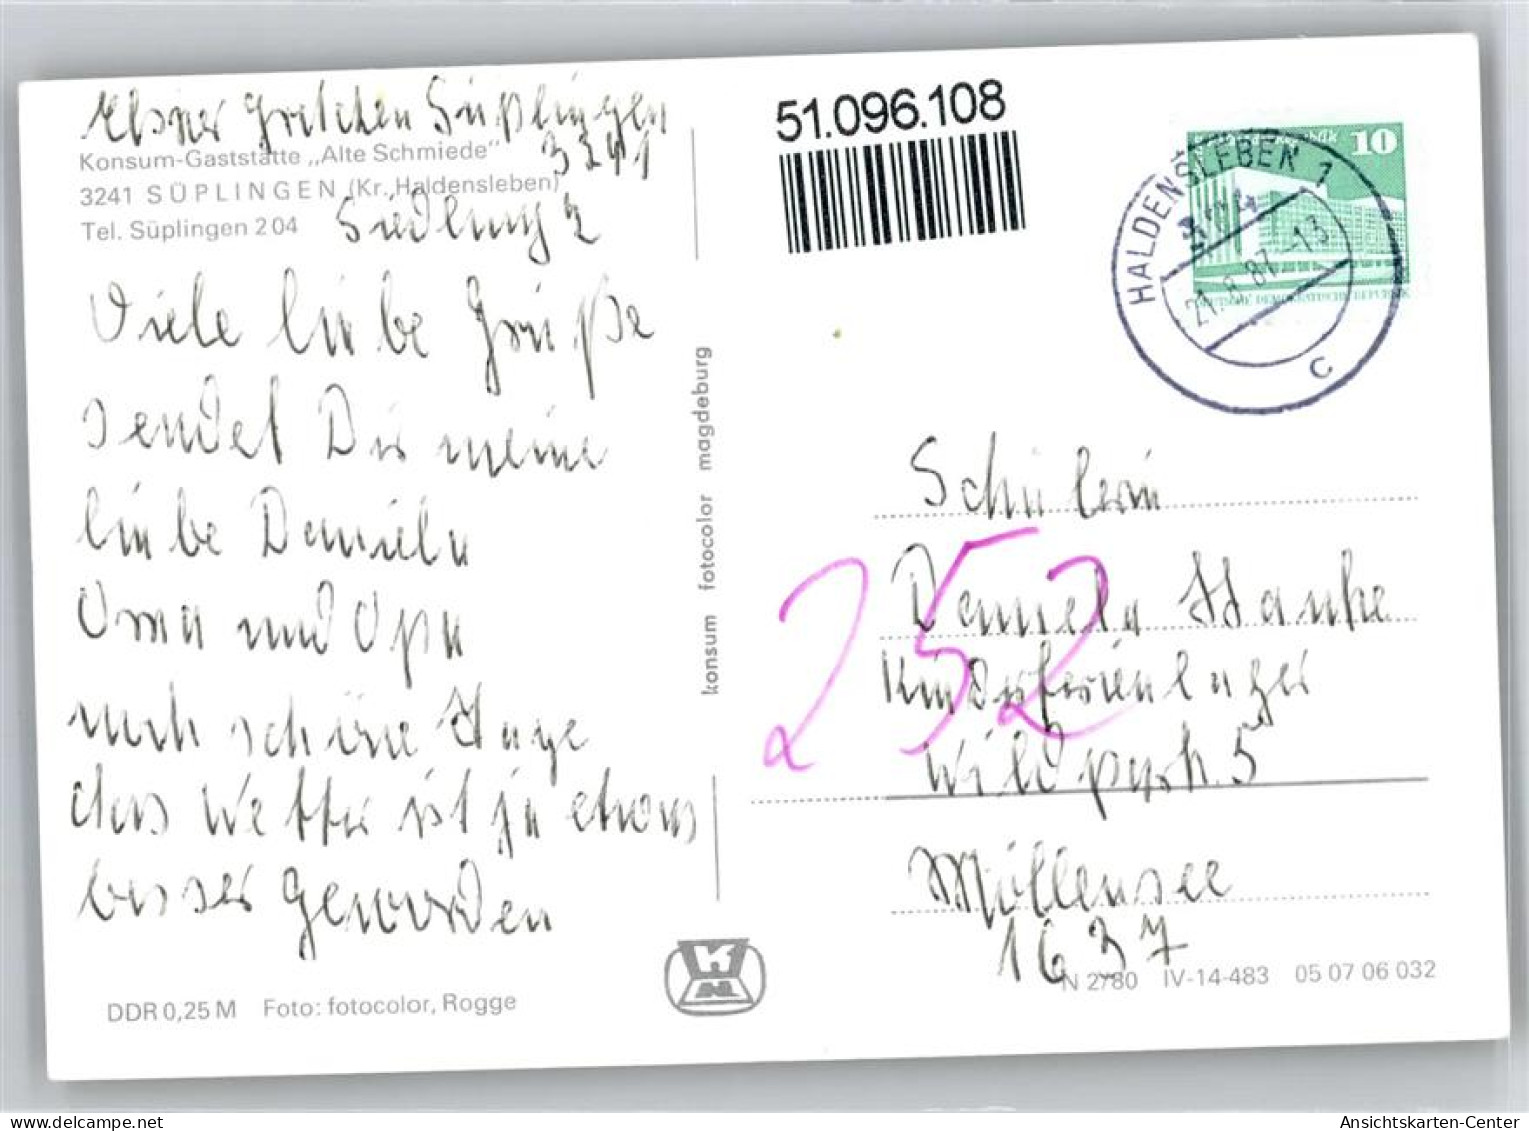 Elsner Gretchen Süplingen
3241
Siedlung 2
Konsum-Gaststätte „Alte Schmiede"
3241 SÜPLINGEN (Kr. Haldensleben)
Tel. Süplingen 204
Viele liebe Grüße
sendet Dir meine
liebe Daniela
Oma und Opa
noch schöne Tage
das Wetter ist ja etwas
besser geworden
DDR 0,25 M Foto: fotocolor, Rogge
konsum fotocolor magdeburg
51.096.108
10
DEUTSCHE DEMOKRATISCHE REPUBLIK
HALDENSLEBEN 1
3240
21.8.87-13
C
Schülerin
Daniela Hanke
Kinderferienlager
Wildpark 5
252
Möllensee
1637
N 2/80 IV-14-483 05 07 06 032
delcampe.net
Ansichtskarten-Center